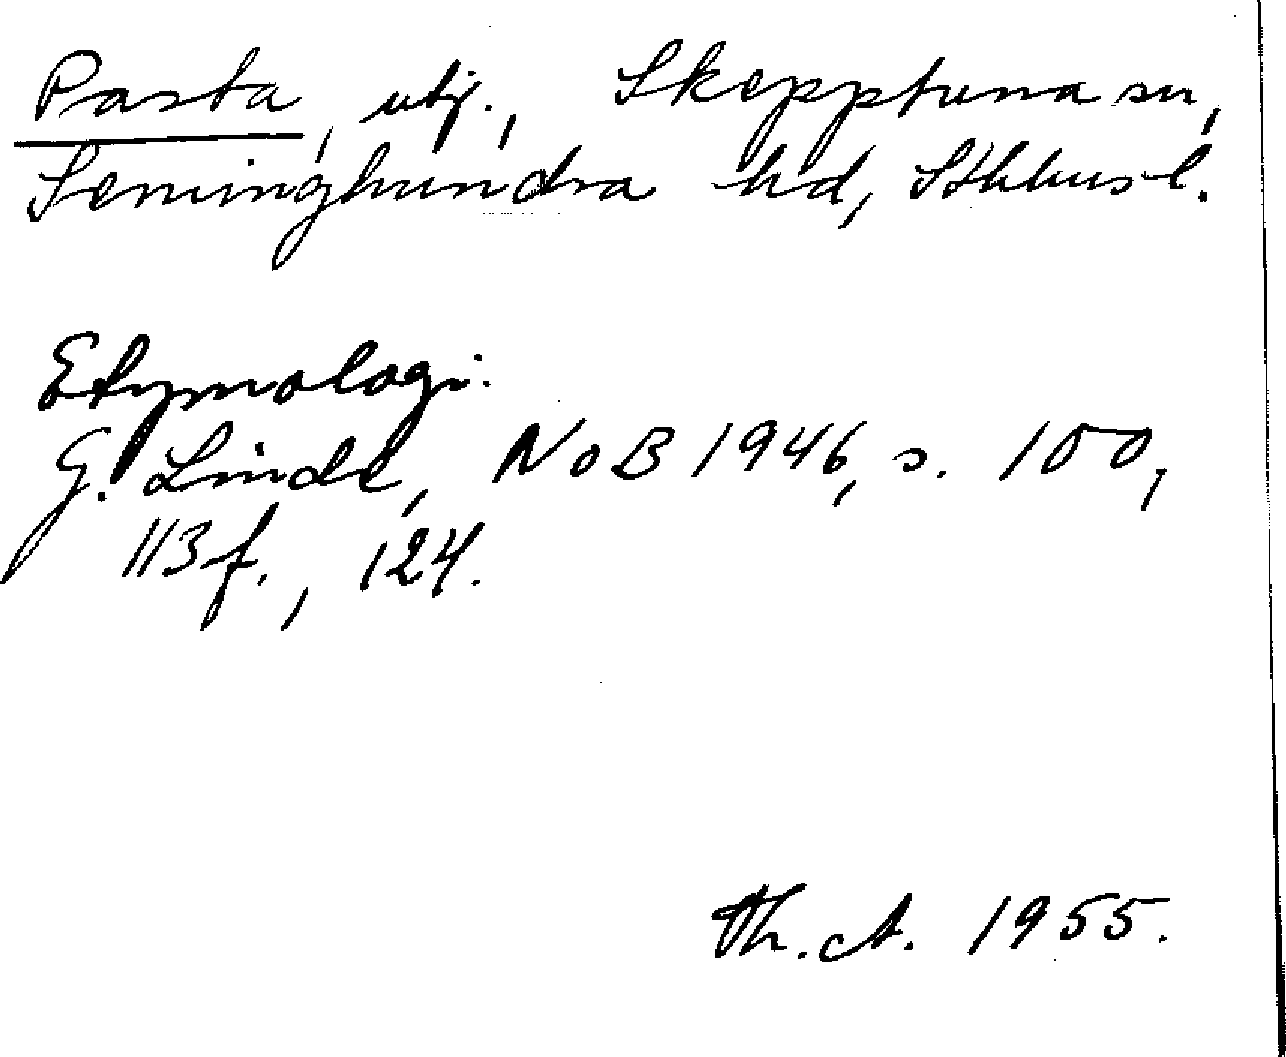 Pasta, utj., Skepptuna sn,
Seminghundra hd, Sthlms l.
Etymologi.
G. Linde, NoB 1946, s. 100,
113 f., 124.
Th. A. 1955.